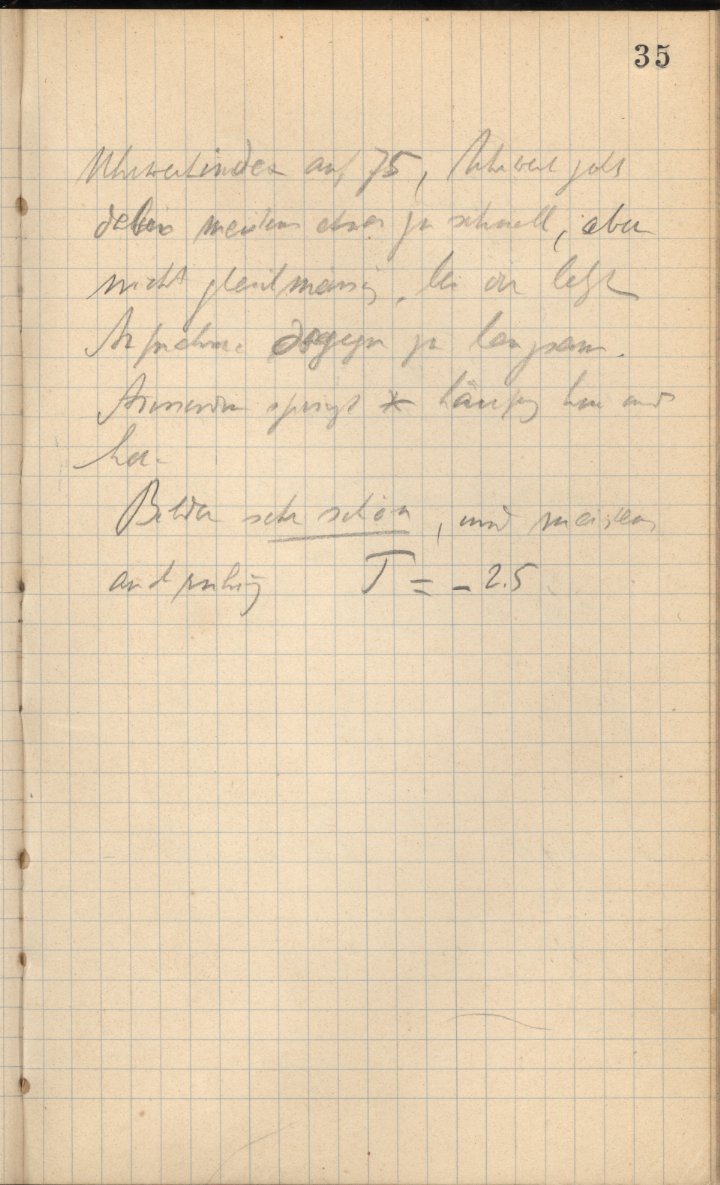 35
Uhrwerkindex auf 75, Uhrwerk geht
dabei meistens etwas zu schnell, aber
nicht gleichmässig, bei der letzt
Aufnahme dagegen zu langsam.
springt * häufig hin und
her.
Bilder sehr schön, und meistens
auch ruhig T = - 2.5